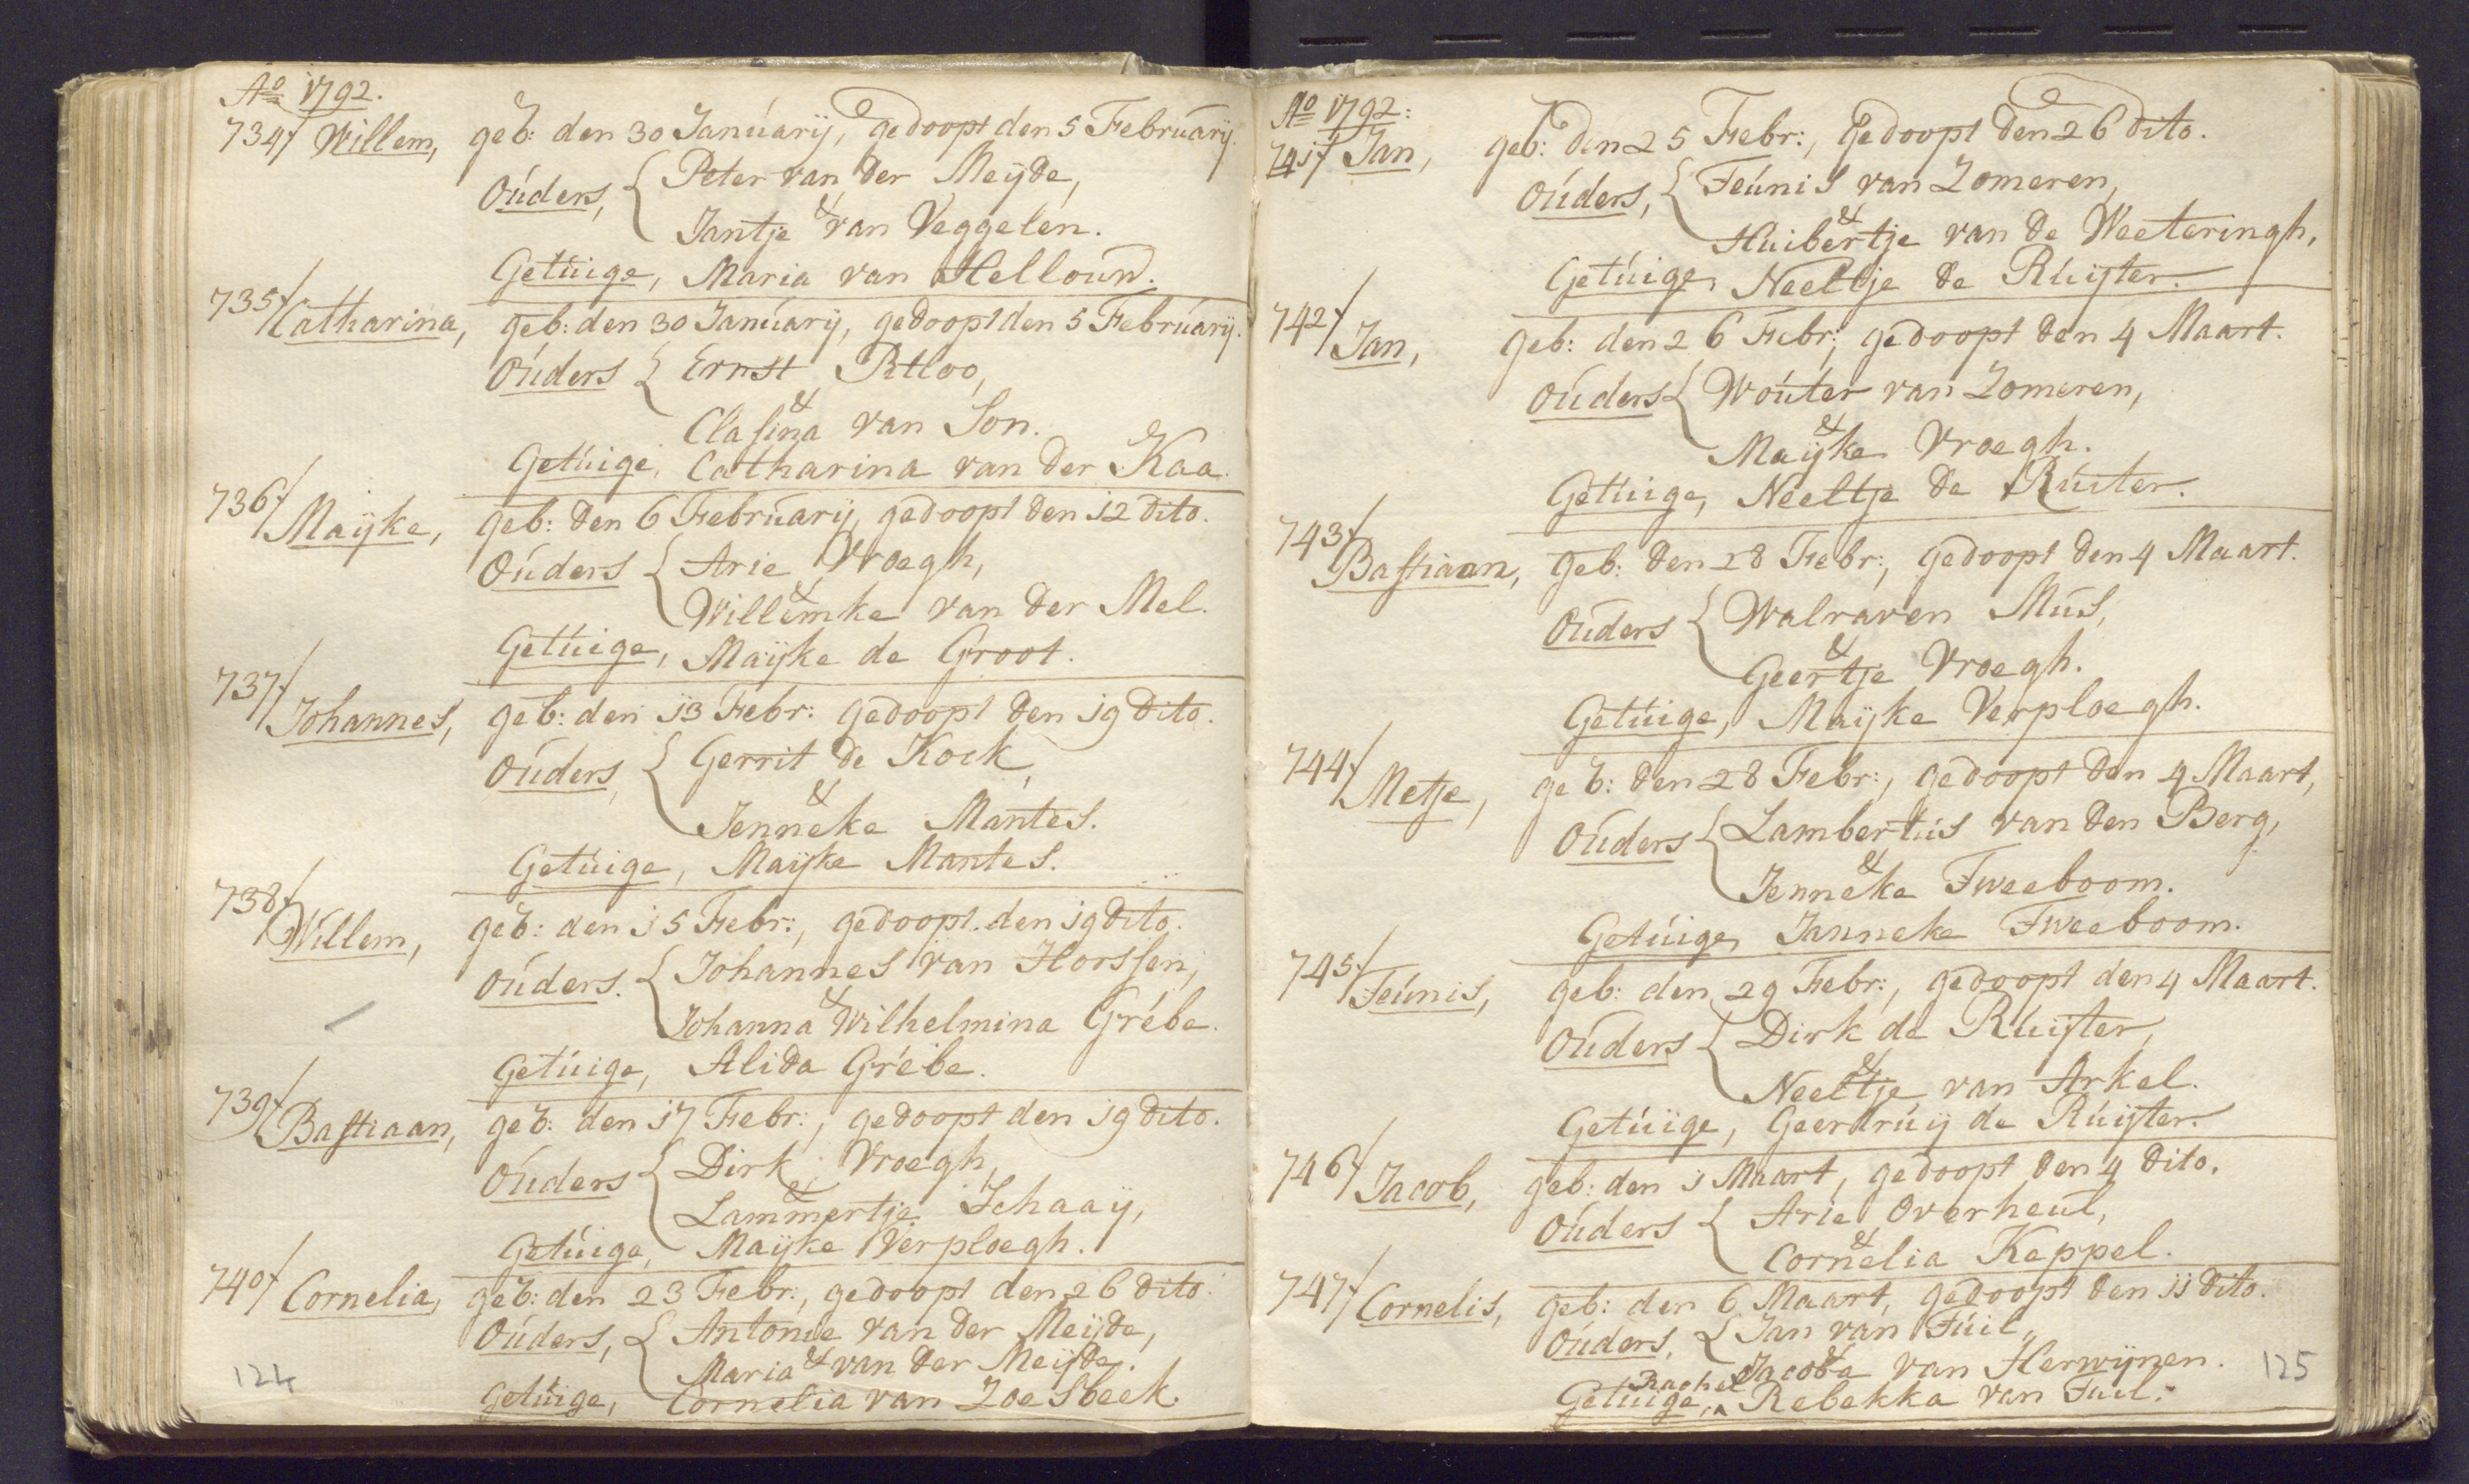 Ao 1792.
734/ Willem, geb: den 30 Januarij, gedoopt den 5 Februarij.
Ouders, { Peter van der Meijde,
&
Jantje van Veggelen.
Getuige, Maria van Hellound.
735/ Catharina, geb: den 30 Januarij, gedoopt den 5 Februarij.
Ouders { Ernst Rtloo,
&
Clasina van Son.
Getuige, Catharina van der Kaa.
736/ Maijke, geb: den 6 Februarij, gedoopt den 12 dito.
Ouders { Arie Vroegh,
&
Willemke van der Mel.
Getuige, Maijke de Groot.
737/ Johannes, geb: den 13 Febr: gedoopt den 19 dito.
Ouders, { Gerrit de Kock,
&
Jenneke Mantes.
Getuige, Maijke Mantes.
738/ Willem, geb: den 15 Febr:, gedoopt den 19 dito.
Ouders. { Johannes van Horssen,
&
Johanna Wilhelmina Grébe.
Getuige, Alida Grébe.
739/ Bastiaan, geb: den 17 Febr:, gedoopt den 19 dito.
Ouders { Dirk Vroegh,
&
Lammertje Schaaij,
Getuige, Maijke Verploegh.
740/ Cornelia, geb: den 23 Febr:, gedoopt den 26 dito.
Ouders, { Antonie van der Meijde,
&
Maria van der Meijde.
Getuige, Cornelia van Zoesbeek.
124
Ao 1792:
741/ Jan, geb: den 25 Febr:, Gedoopt den 26 dito.
Ouders, { Teunis van Zomeren,
&
Huibertje van de Weeteringh,
Getuige, Neeltje de Ruijter.
742/ Jan, geb: den 26 Febr:, gedoopt den 4 Maart.
Ouders { Wouter van Zomeren,
&
Maijke Vroegh.
Getuige, Neeltje de Ruiter.
743/ Bastiaan, geb: den 28 Febr:, gedoopt den 4 Maart.
Ouders { Walraven Mus,
&
Geertje Vroegh.
Getuige, Maijke Verploegh.
744/ Metje, geb: den 28 Febr:, gedoopt den 4 Maart,
Ouders { Lambertus van den Berg,
&
Jenneke Tweeboom.
Getuige, Janneke Tweeboom.
745/ Teunis, geb: den 29 Febr:, gedoopt den 4 Maart.
Ouders { Dirk de Ruijter,
&
Neeltje van Arkel.
Getuige, Geerdruij de Ruijter.
746/ Jacob, geb: den 1 Maart, gedoopt den 4 dito.
Ouders { Arie Overheul,
&
Cornelia Keppel.
747/ Cornelis, geb: den 6 Maart, gedoopt den 11 dito.
Ouders, { Jan van Tuil,
&
Jacoba van Herwijnen.
Rachel
Getuige, ^ Rebekka van Tuil.
125